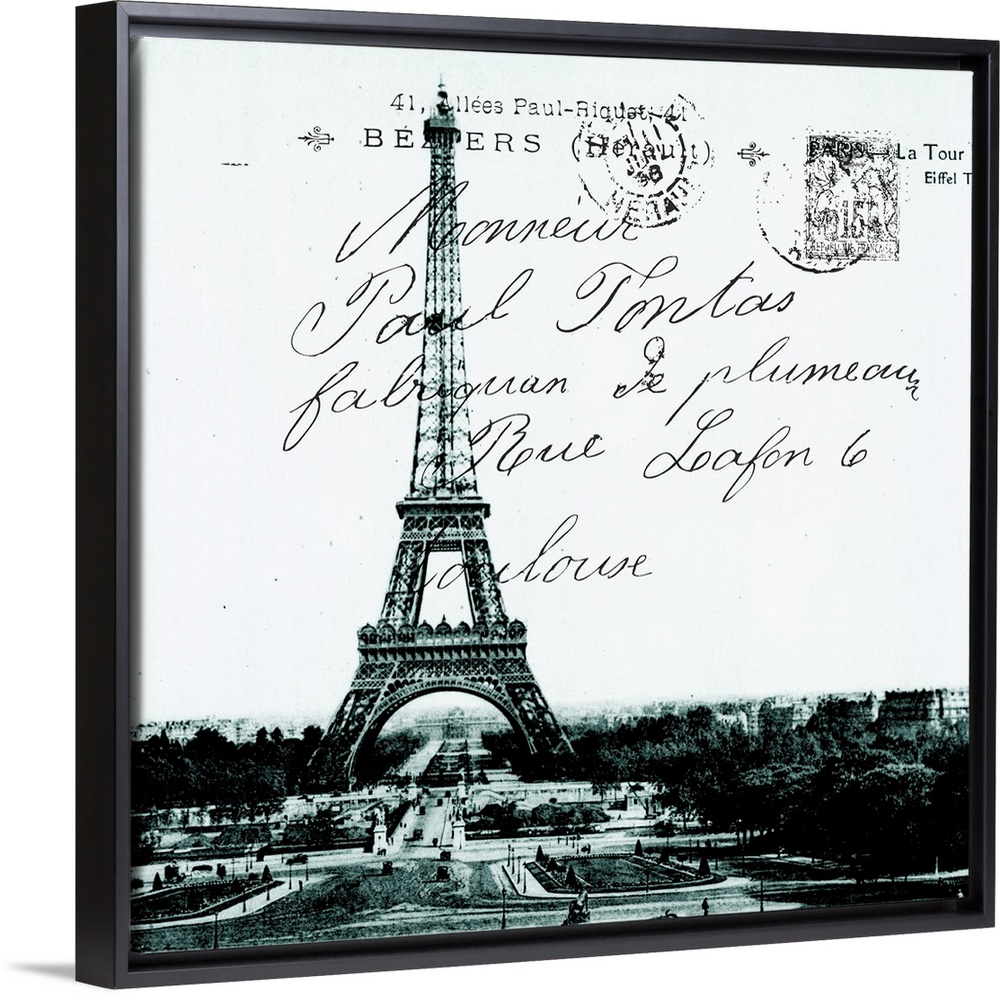 41, Allées Paul-Riquet, 41
BÉZIERS (Hérault)
PARIS — La Tour
Eiffel T
15
REPUBLIQUE FRANÇAISE
Monneur
Paul Tontas
fabriquan de plumeaux
Rue Lafon 6
Toulouse